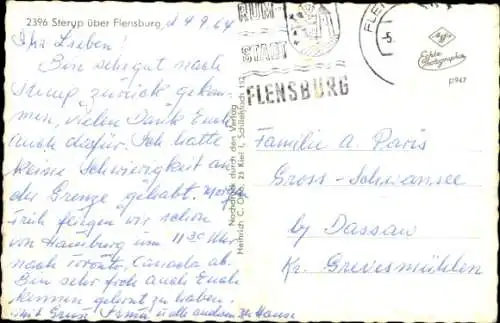 2396 Sterup über Flensburg, d 4.9.64
Ihr Lieben!
Bin sehr gut nach
Sterup zurück gekom-
men, vielen Dank Euch
auch dafür. Ich hatte
keine Schwierigkeit an
der Grenze gehabt. Morgen
früh fliegen wir schon
von Hamburg um 11 30 Uhr
nach Toronto, Canada ab.
Bin sehr froh auch Euch
kennen gelernt zu haben.
Mit Gruß Erna u alle anderen zu Hause
Nachdruck durch den Verlag
Heinrich C. Otto, 23 Kiel 1, Schließfach 112
STADT
FLENSBURG
FLE
5.
Agfa
Echte
Photographie
p 947
Familie A. Paris
Gross-Schwansee
by Dassau
Kr. Grevesmühlen